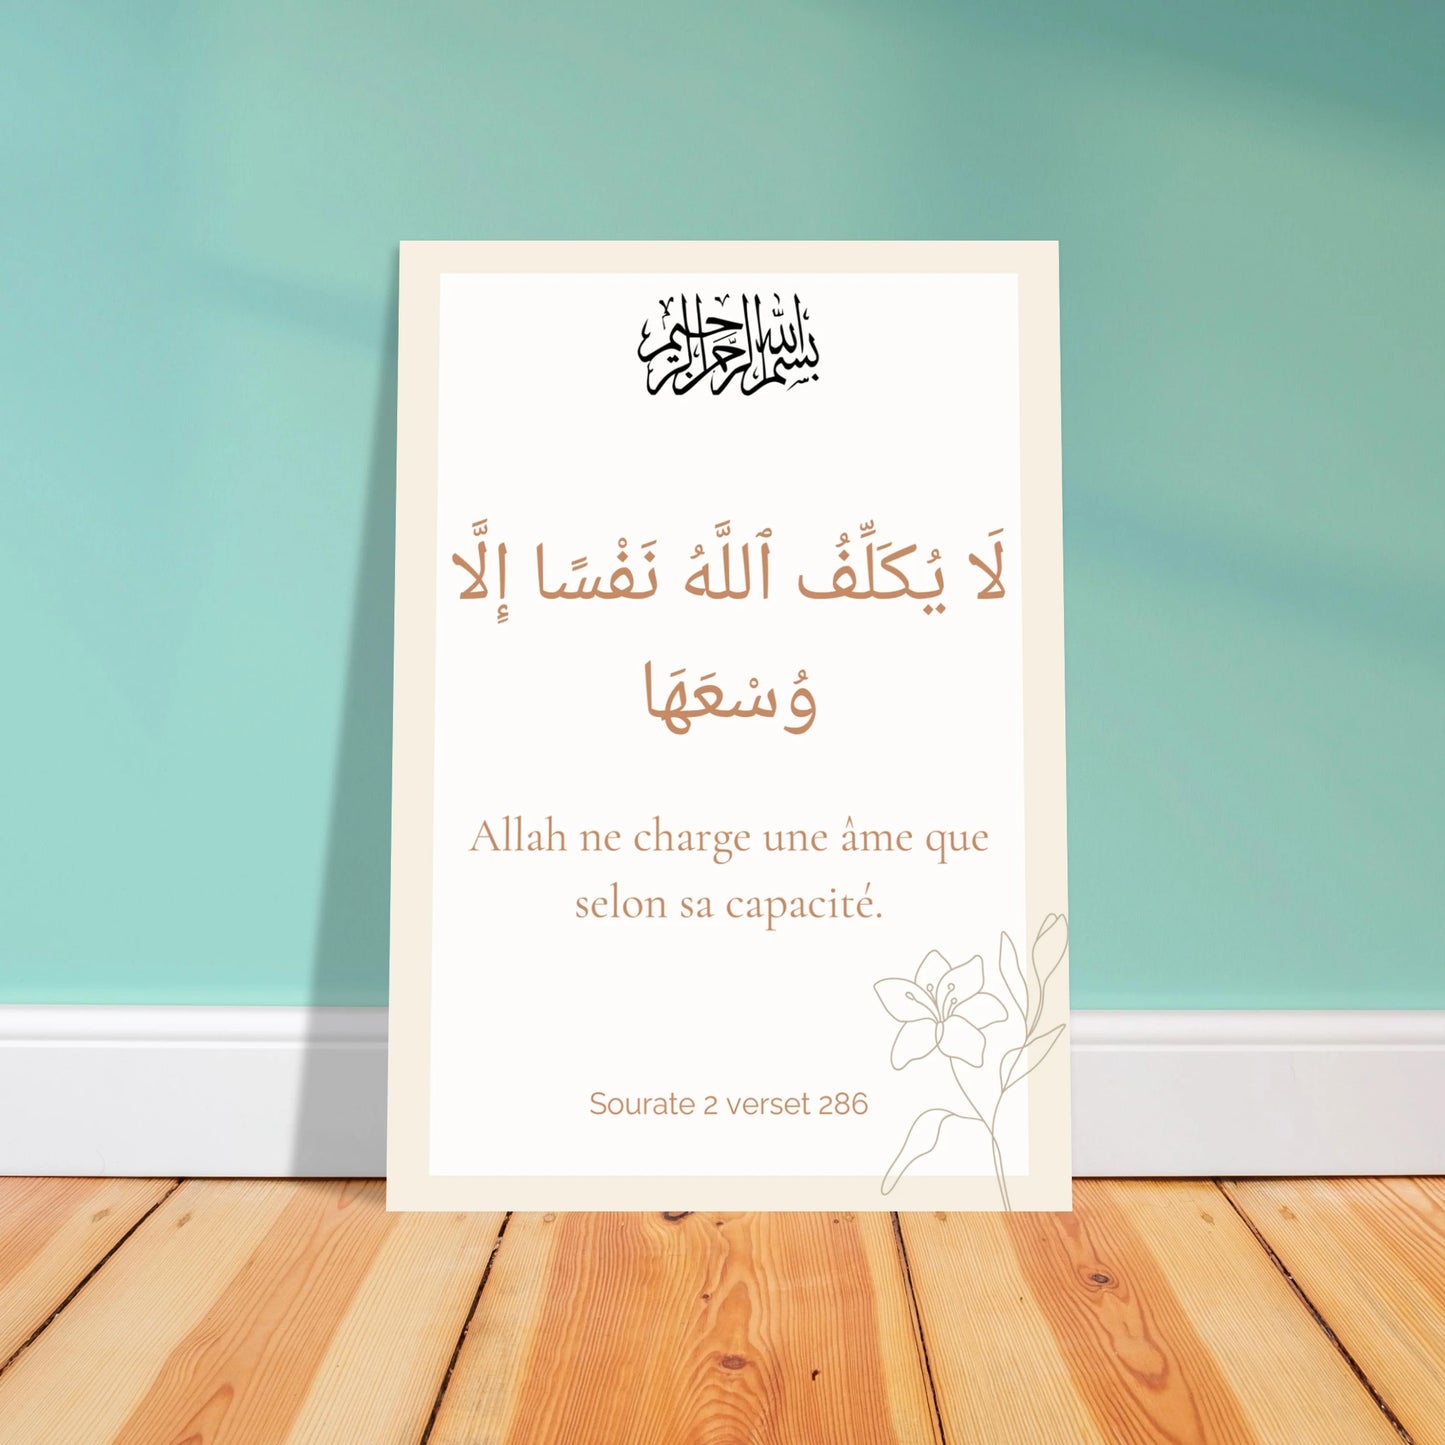 بسم الله الرحمن الرحيم
لَا يُكَلِّفُ ٱللَّهُ نَفْسًا إِلَّا
وُسْعَهَا
Allah ne charge une âme que
selon sa capacité.
Sourate 2 verset 286